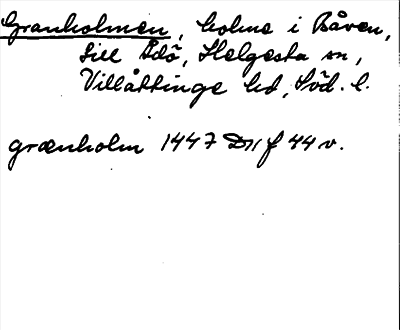 Granholmen, holme i Båven,
till Edö, Helgesta sn,
Villåttinge hd, Söd. l.
grænholm 1447 D11 f 44 v.